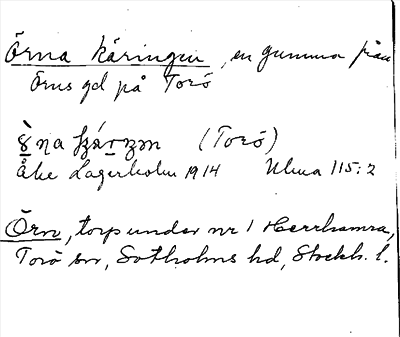 Örna käringen, en gumma från
Örns gd på Torö
(Torö)
Åke Lagerholm 1914 Ulma 115:2
Örn, torp under nr 1 Herrhamra,
Torö sn, Sotholms hd, Stockh. l.